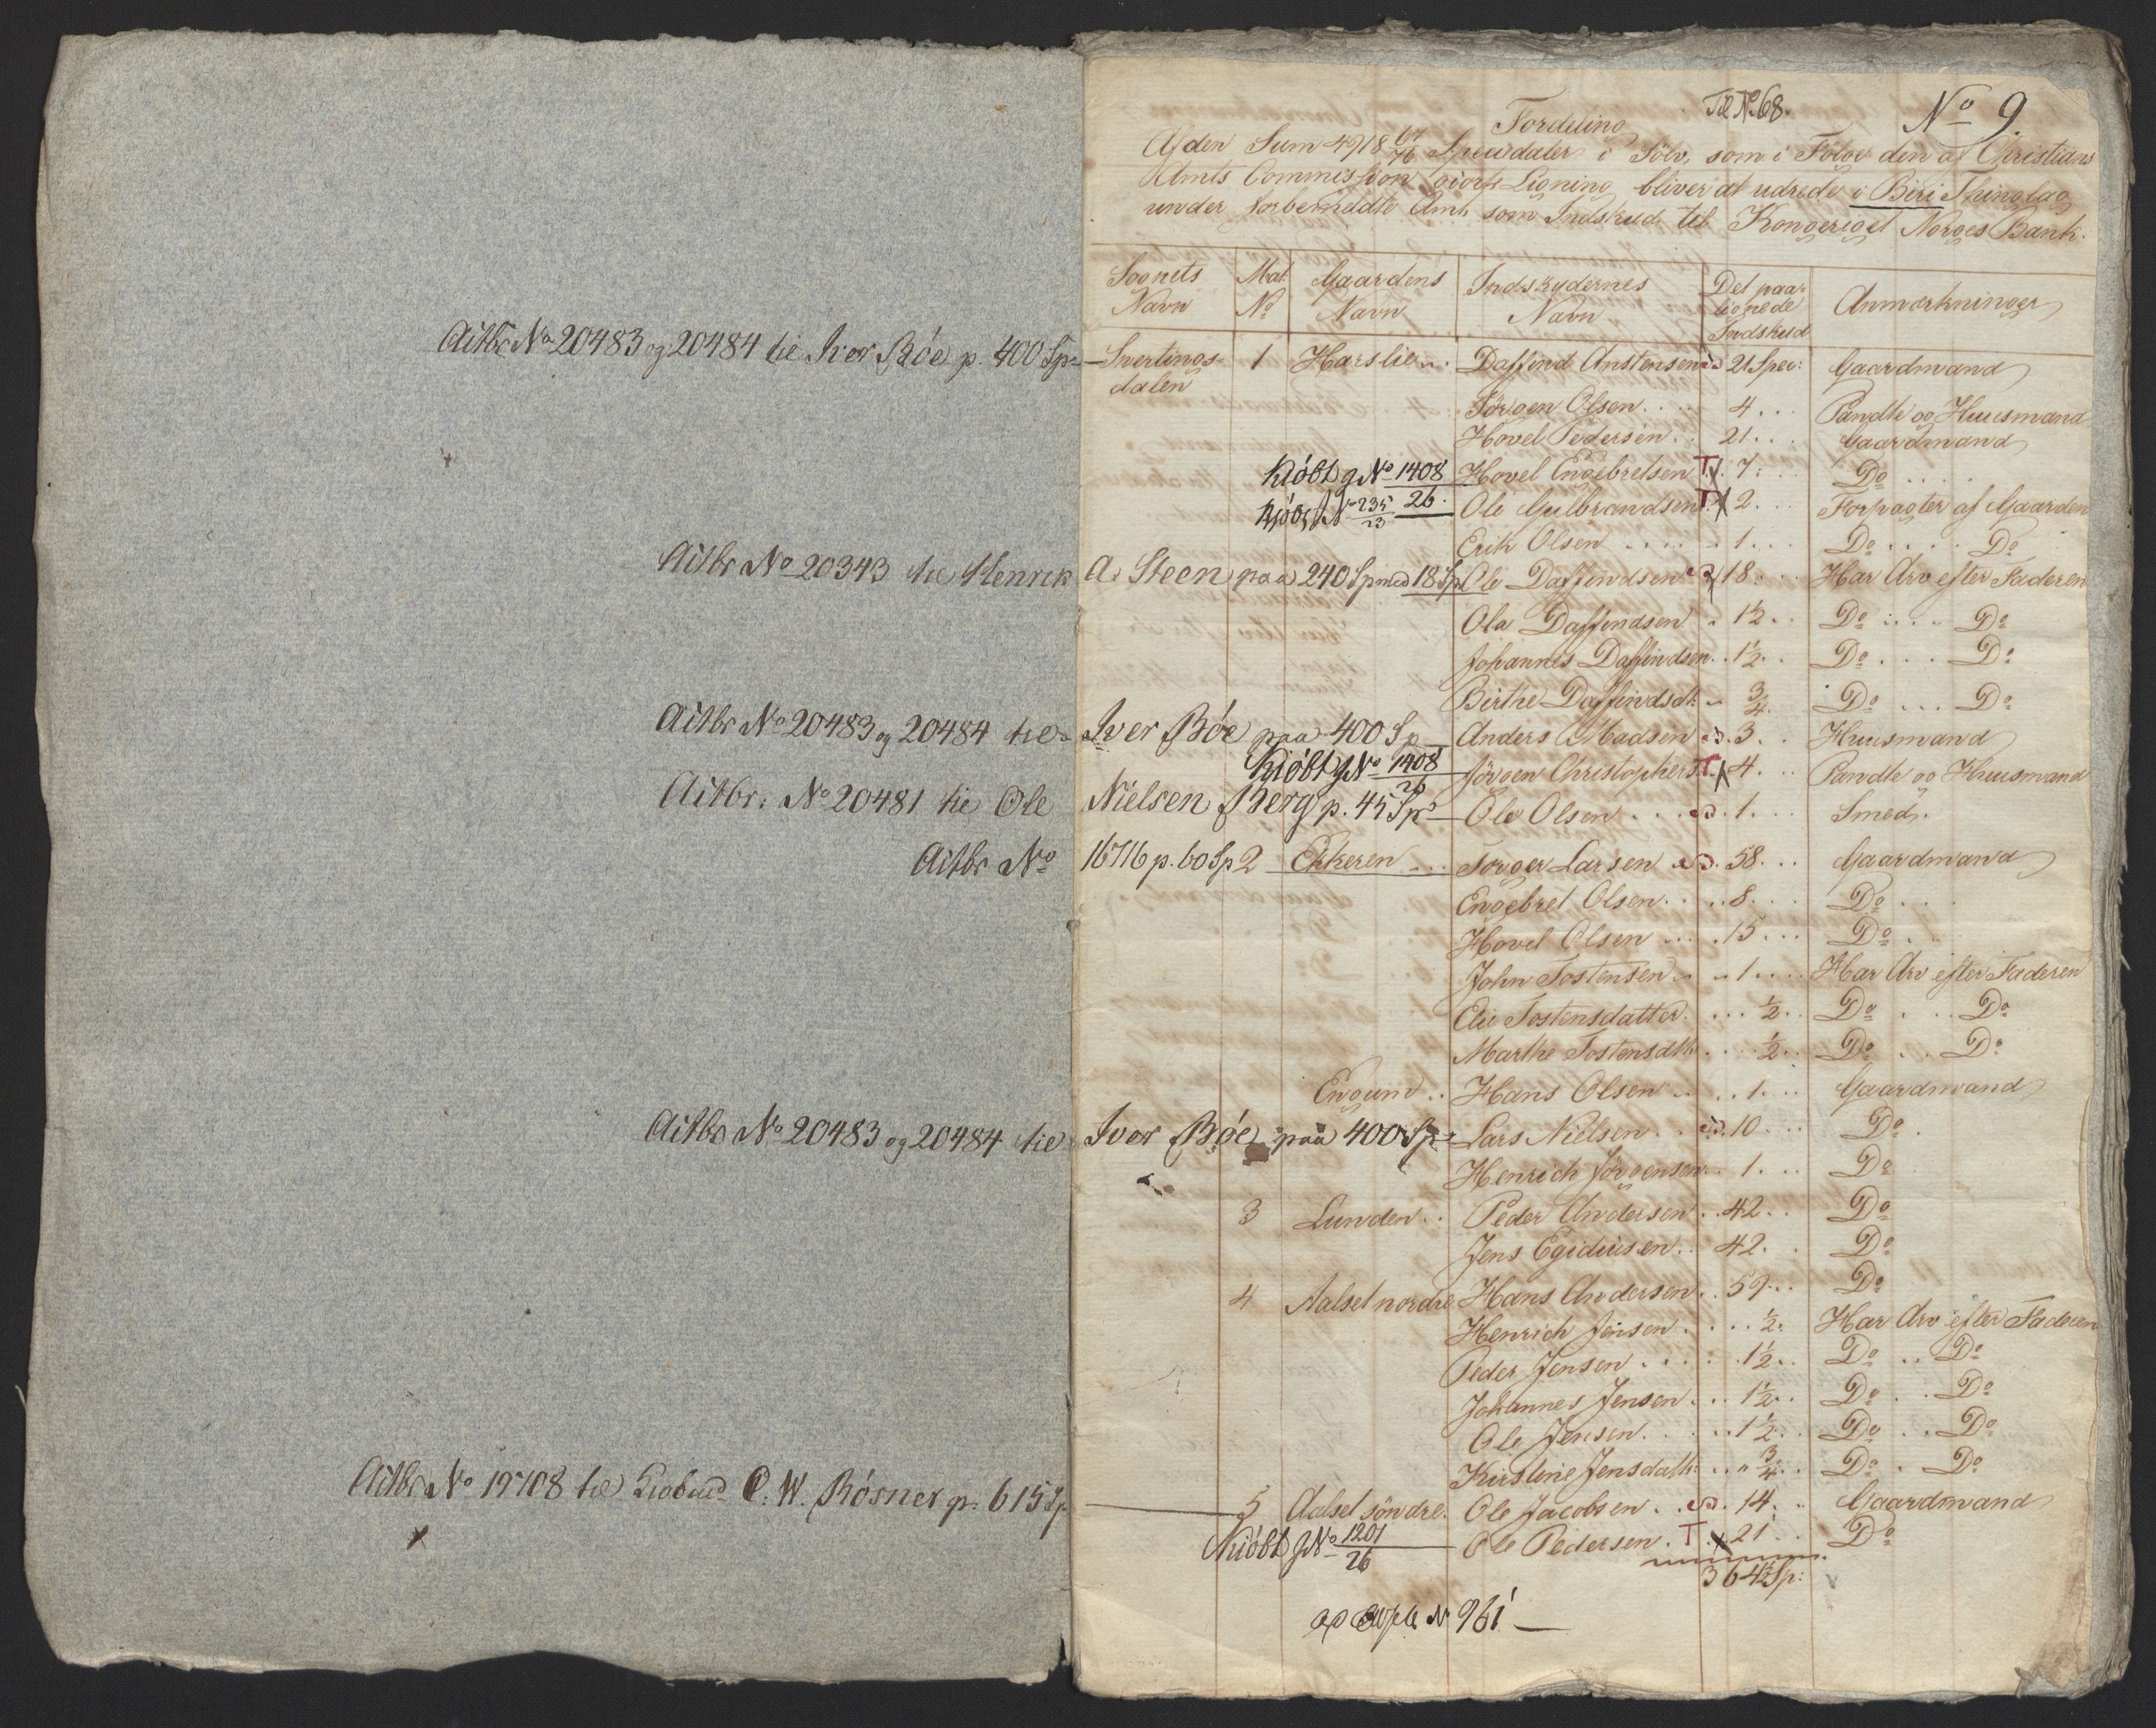 Til No 68.
No 9.
Fordeling
Af den Sum 4918 67/76 Speciedaler i Sölv, som i Fölge den af Christians
Amts Commission giorte Ligning bliver at udrede i Biri Thinglag
under forbemeldte Amt, som Indskud til Kongeriget Norges Bank.
Sognets Navn | Mat. No | Gaardens Navn | Indskydernes Navn | Det paalignede Indskud | Anmærkninger
Actbr No 20483 og 20484 til Iver Böe p. 400 Sp
Snertingsdalen 1 Harslien Daffind Anstensen 21 Spec: Gaardmand
Jörgen Olsen 4 Pandte og Huusmand
Hovel Pedersen 21 Gaardmand
Kiöbt g No 1408/26 Hovel Engebretsen T 7 Do
No 235/23 Ole Gulbrandsen T 2 Forpagter af Gaarden
Erik Olsen 1 Do Do
Actbr No 20343 til Henrik A. Steen paa 240 Sp med 18 Sp Ole Daffindsen 18 Har Arv efter Faderen
Ola Daffindsen 1½ Do Do
Johannes Daffindsen 1½ Do Do
Birthe Daffindsdtr ¾ Do Do
Actbr No 20483 og 20484 til Iver Böe paa 400 Sp Anders Madsen 3 Huusmand
Kiöbt g No 1408/26 Jörgen Christophers T 4 Pandte og Huusmand
Actbr: No 20481 til Ole Nielsen Berg p. 45 Sp Ole Olsen 1 Smed.
Actbr No 16716 p. 60 Sp 2 Ekkeren Torger Larsen 58 Gaardmand
Engebret Olsen 8 Do
Hovel Olsen 15 Do
John Tostensen 1 Har Arv efter Faderen
Elie Tostensdatter ½ Do Do
Marthe Tostensdtr ½ Do Do
Engum Hans Olsen 1 Gaardmand
Actbr No 20483 og 20484 til Iver Böe paa 400 Sp Lars Nielsen 10 Do
Henrich Jörgensen 1 Do
3 Lunden Peder Andersen 42 Do
Jens Egidiusen 42 Do
4 Aalset nordre Hans Andersen 59 Do
Henrich Jensen ½ Har Arv efter Faderen
Peder Jensen 1½ Do Do
Johannes Jensen 1½ Do Do
Ole Jensen 1½ Do Do
Kirstine Jensdatr ¾ Do Do
Actbr No 19708 til C. W. Rösner p. 615 Sp 5 Aalset söndre Ole Jacobsen 14 Gaardmand
Kiöbt g No 1201/26 Ole Pedersen T 21 Do
364½ Sp:
No 961